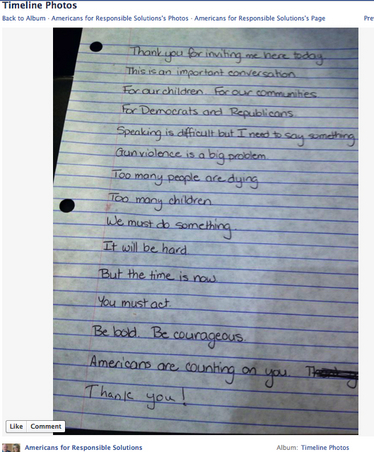 Timeline Photos
Back to Album · Americans for Responsible Solutions's Photos · Americans for Responsible Solutions's Page
Pre
Thank you for inviting me here today
This is an important conversation
For our children. For our communities
For Democrats and Republicans.
Speaking is difficult but I need to say something
Gun violence is a big problem
Too many people are dying
Too many children.
We must do something.
It will be hard.
But the time is now
You must act.
Be bold. Be courageous.
Americans are counting on you.
Thank you!
Like Comment
Americans for Responsible Solutions
Album: Timeline Photos